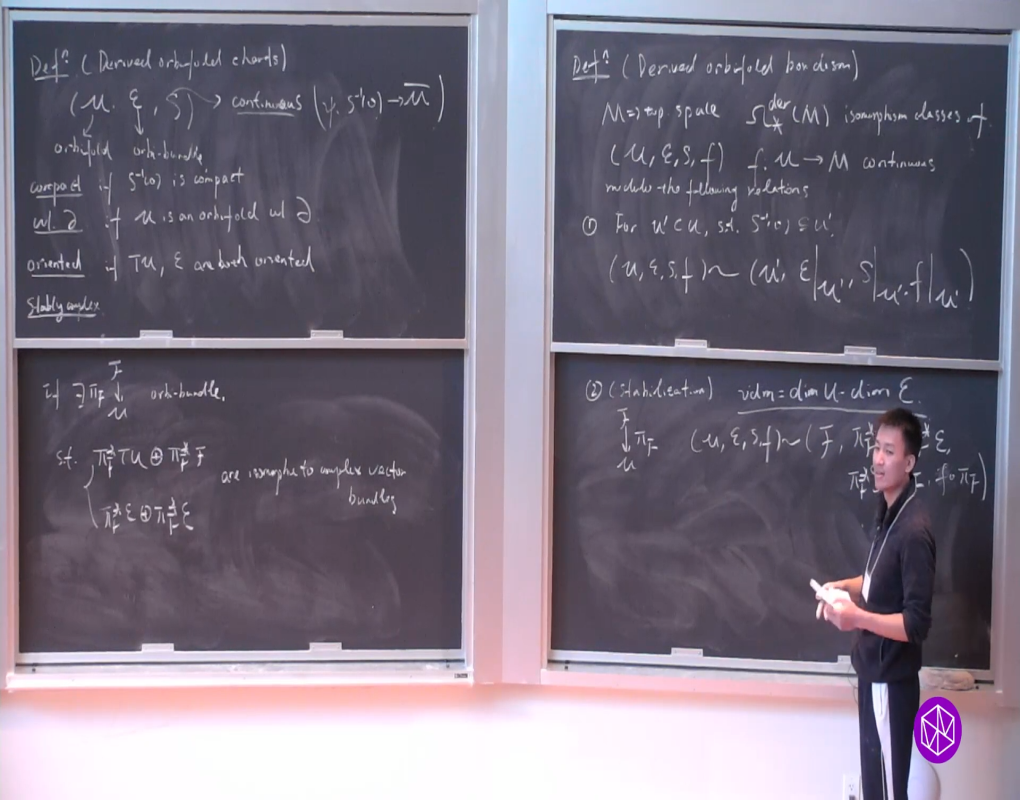 Defn: (Derived orbifold charts)
(U, E, S) → continuous (ψ, S⁻¹(0) → M̄)
orbifold orbi-bundle
compact if S⁻¹(0) is compact
w/. ∂ if U is an orbifold w/ ∂.
oriented if TU, E are both oriented
Stably complex
if ∃ π_F F ↓ U orbi-bundle,
s.t. π_F^* TU ⊕ π_F^* F
are isomorphic to complex vector bundles
π_F^* E ⊕ π_F^* E
Defn: (Derived orbifold bordism)
M => top. space Ω_*^der (M) isomorphism classes of
(U, E, S, f) f: U → M continuous
modulo the following relations
① For U' ⊂ U, s.t. S⁻¹(0) ⊆ U',
(U, E, S, f) ~ (U', E|_U', S|_U', f|_U')
② (Stabilization) vdim = dim U - dim E.
F ↓ π_F U (U, E, S, f) ~ (F, π_F^* E,
f∘π_F)